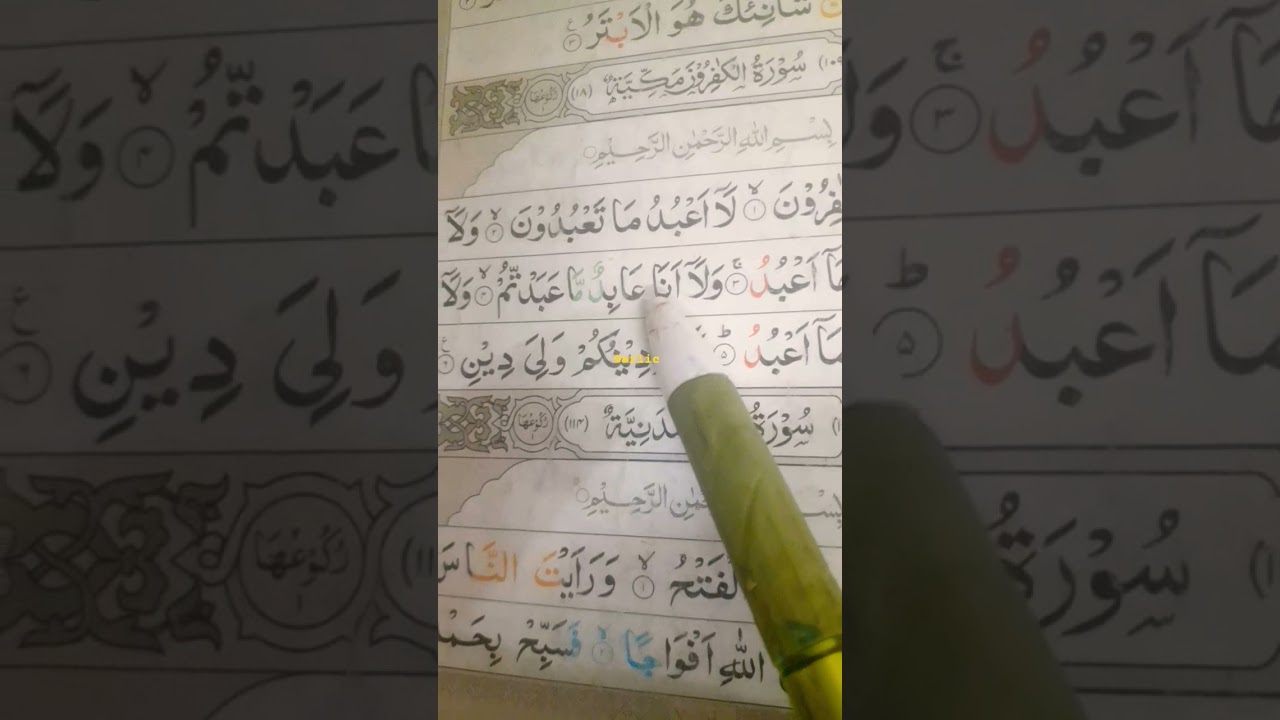 شَانِئَكَ هُوَ الْاَبْتَرُ ۝۳
سُوْرَةُ الْكٰفِرُوْنَ مَكِّيَّةٌ (۱۸) رُكُوْعُهَا
بِسْمِ اللّٰهِ الرَّحْمٰنِ الرَّحِيْمِ
فِرُوْنَ ۙ۝۱ لَاۤ اَعْبُدُ مَا تَعْبُدُوْنَ ۙ۝۲ وَلَاۤ
مَاۤ اَعْبُدُ ۚ۝۳ وَلَاۤ اَنَا عَابِدٌ مَّا عَبَدْتُّمْ ۙ۝۴ وَلَاۤ
مَاۤ اَعْبُدُ ؕ۝۵ دِيْنُكُمْ وَلِيَ دِيْنِ ۝۶
سُوْرَةُ مَدَنِيَّةٌ (۱۱۴) رُكُوْعُهَا
بِسْمِ الرَّحْمٰنِ الرَّحِيْمِ
الْفَتْحُ ۙ۝۱ وَرَاَيْتَ النَّاسَ
اللّٰهِ اَفْوَاجًا ۙ۝۲ فَسَبِّحْ بِحَمْ